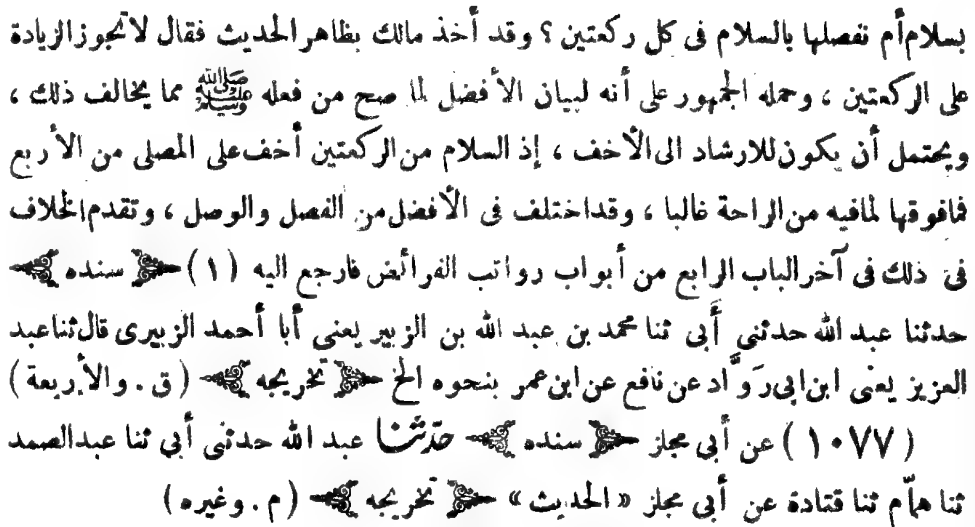 بسلام أم نفصلها بالسلام فى كل ركعتين ؟ وقد أخذ مالك بظاهر الحديث فقال لا تجوز الزيادة
على الركعتين ، وحمله الجمهور على أنه لبيان الأفضل لما صح من فعله ﷺ مما يخالف ذلك ،
ويحتمل أن يكون للارشاد الى الأخف ، إذ السلام من الركعتين أخف على المصلى من الأربع
فمافوقها لما فيه من الراحة غالبا ، وقد اختلف فى الأفضل من الفصل والوصل ، وتقدم الخلاف
فى ذلك فى آخر الباب الرابع من أبواب رواتب الفرائض فارجع اليه (١) سنده
حدثنا عبد الله حدثنى أبى ثنا محمد بن عبد الله بن الزبير يعنى أبا أحمد الزبيرى قال ثنا عبد
العزيز يعنى ابن ابى رَوَّاد عن نافع عن ابن عمر بنحوه الخ تخريجه (ق . والأربعة)
(١٠٧٧) عن أبى مجلز سنده حدّثنا عبد الله حدثنى أبي ثنا عبد الصمد
ثنا همَّام ثنا قتادة عن أبى مجلز «الحديث» تخريجه (م . وغيره)